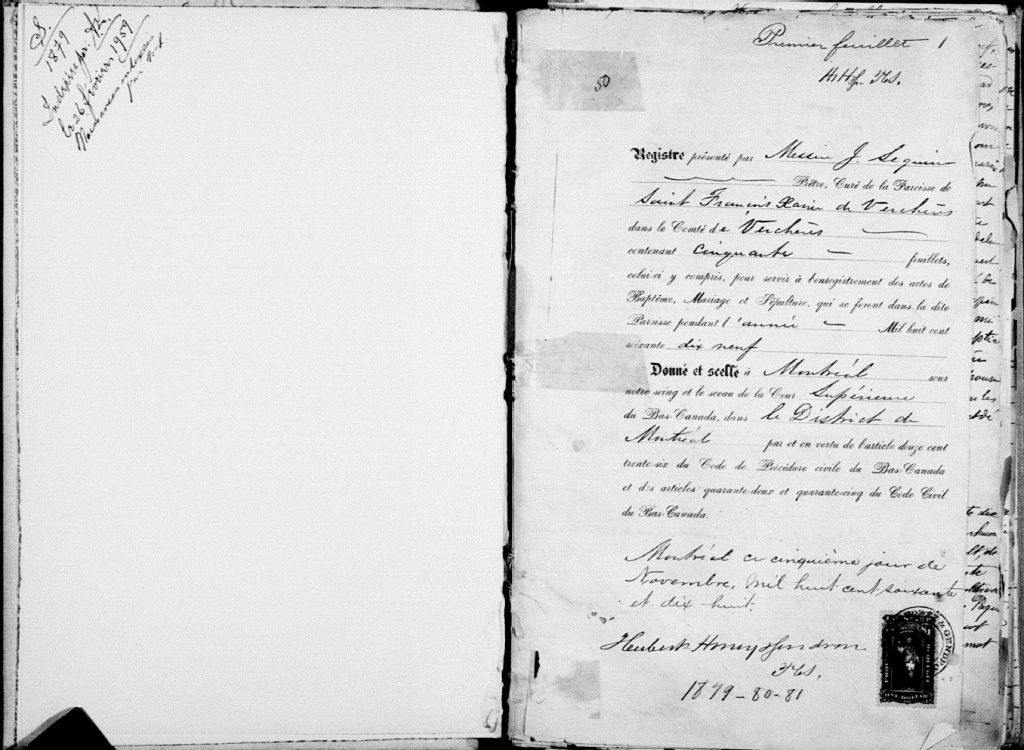 S.
1879
le 26 février 1959
par
Premier feuillet 1
50
Registre présenté par Messire J. Seguin
Prêtre, Curé de la Paroisse de
Saint François Xavier de Verchères
dans le Comté de Verchères
contenant cinquante feuillets,
celui-ci y compris, pour servir à l'enregistrement des actes de
Baptême, Mariage et Sépulture, qui se feront dans la dite
Paroisse pendant l'année Mil huit cent
soixante dix neuf
Donné et scellé à Montréal sous
notre seing et le sceau de la Cour Supérieure
du Bas-Canada, dans le District de
Montréal par et en vertu de l'article douze cent
trente-six du Code de Procédure civile du Bas-Canada
et des articles quarante-deux et quarante-cinq du Code Civil
du Bas-Canada.
Montréal ce cinquième jour de
Novembre, mil huit cent soixante
et dix huit.
Hubert Henry Gendron
1879-80-81
ONE DOLLAR